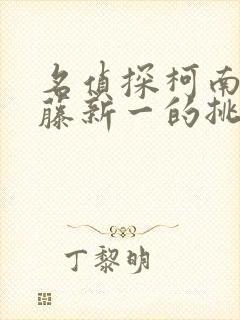 名侦探柯南
藤新一的挑
丁黎明